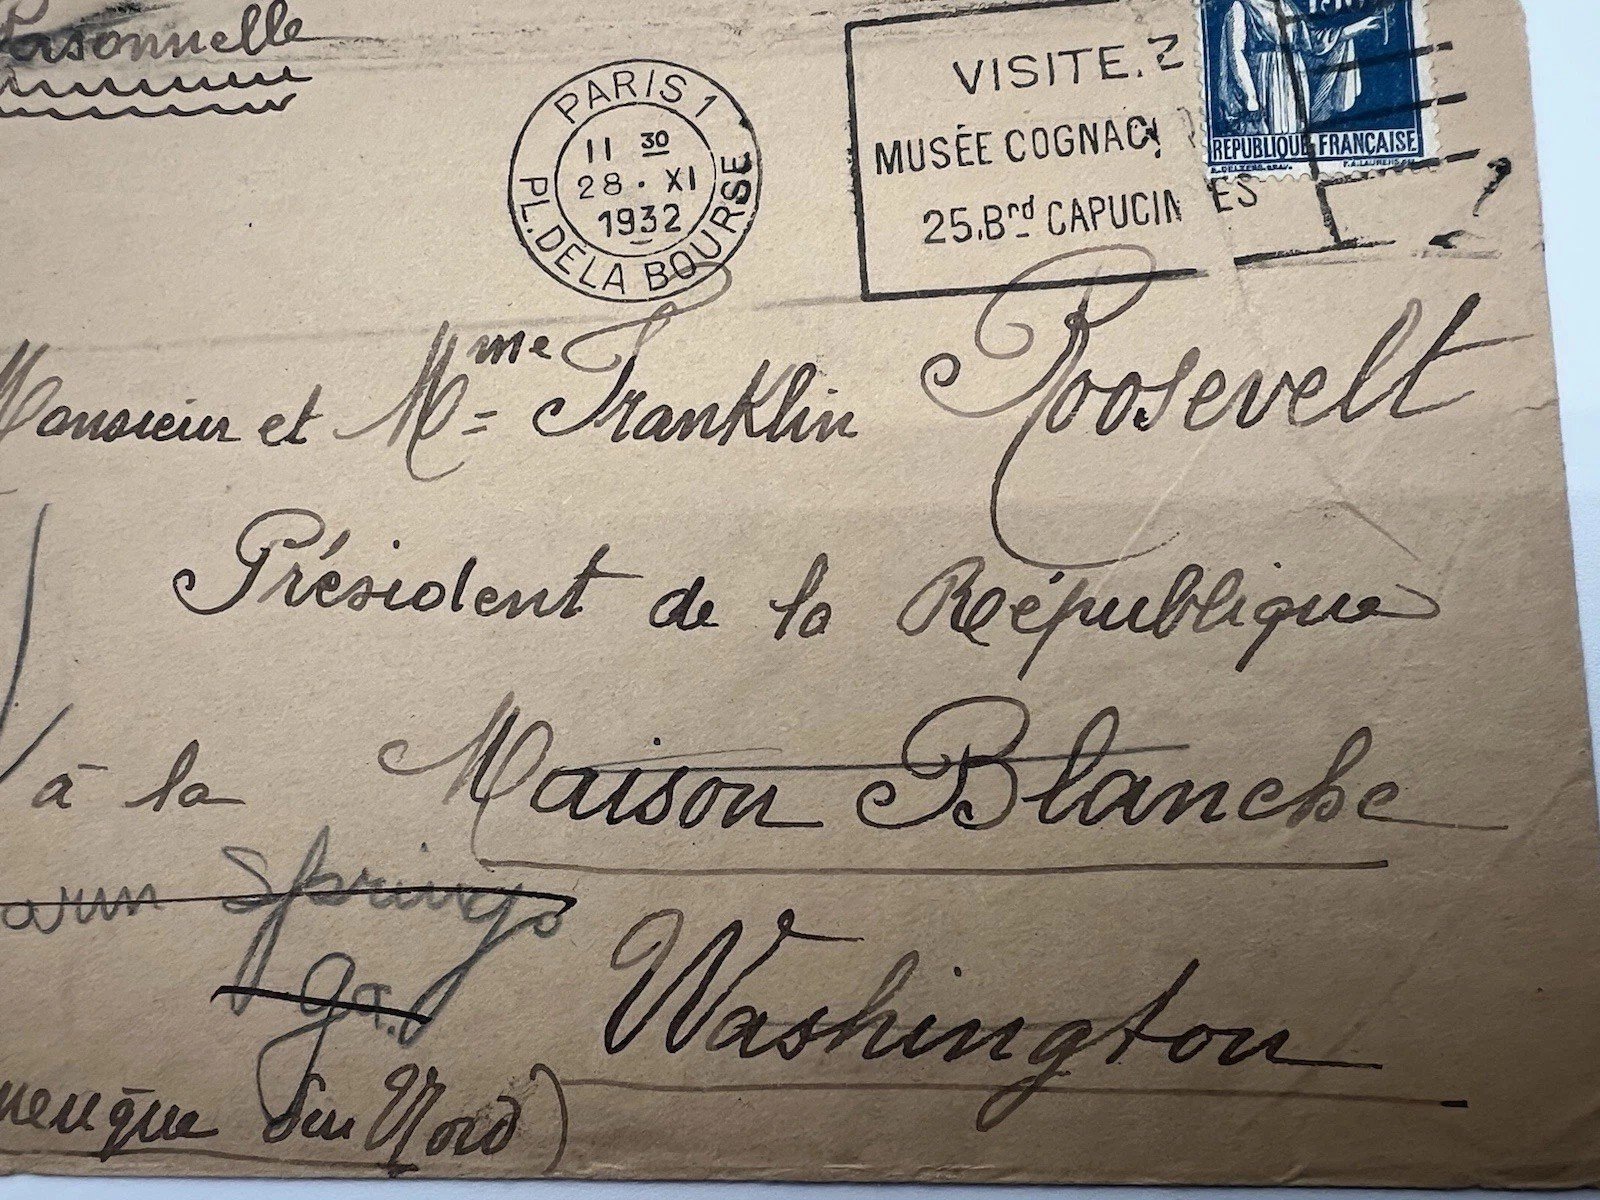 Personnelle
PARIS 1
11 30
28 · XI
1932
PL. DE LA BOURSE
VISITEZ
MUSÉE COGNACQ
25, Brd CAPUCINES
REPUBLIQUE FRANÇAISE
Monsieur et Mme Franklin Roosevelt
Président de la République
à la Maison Blanche
Warm Springs
ga.
Washington
du Nord)